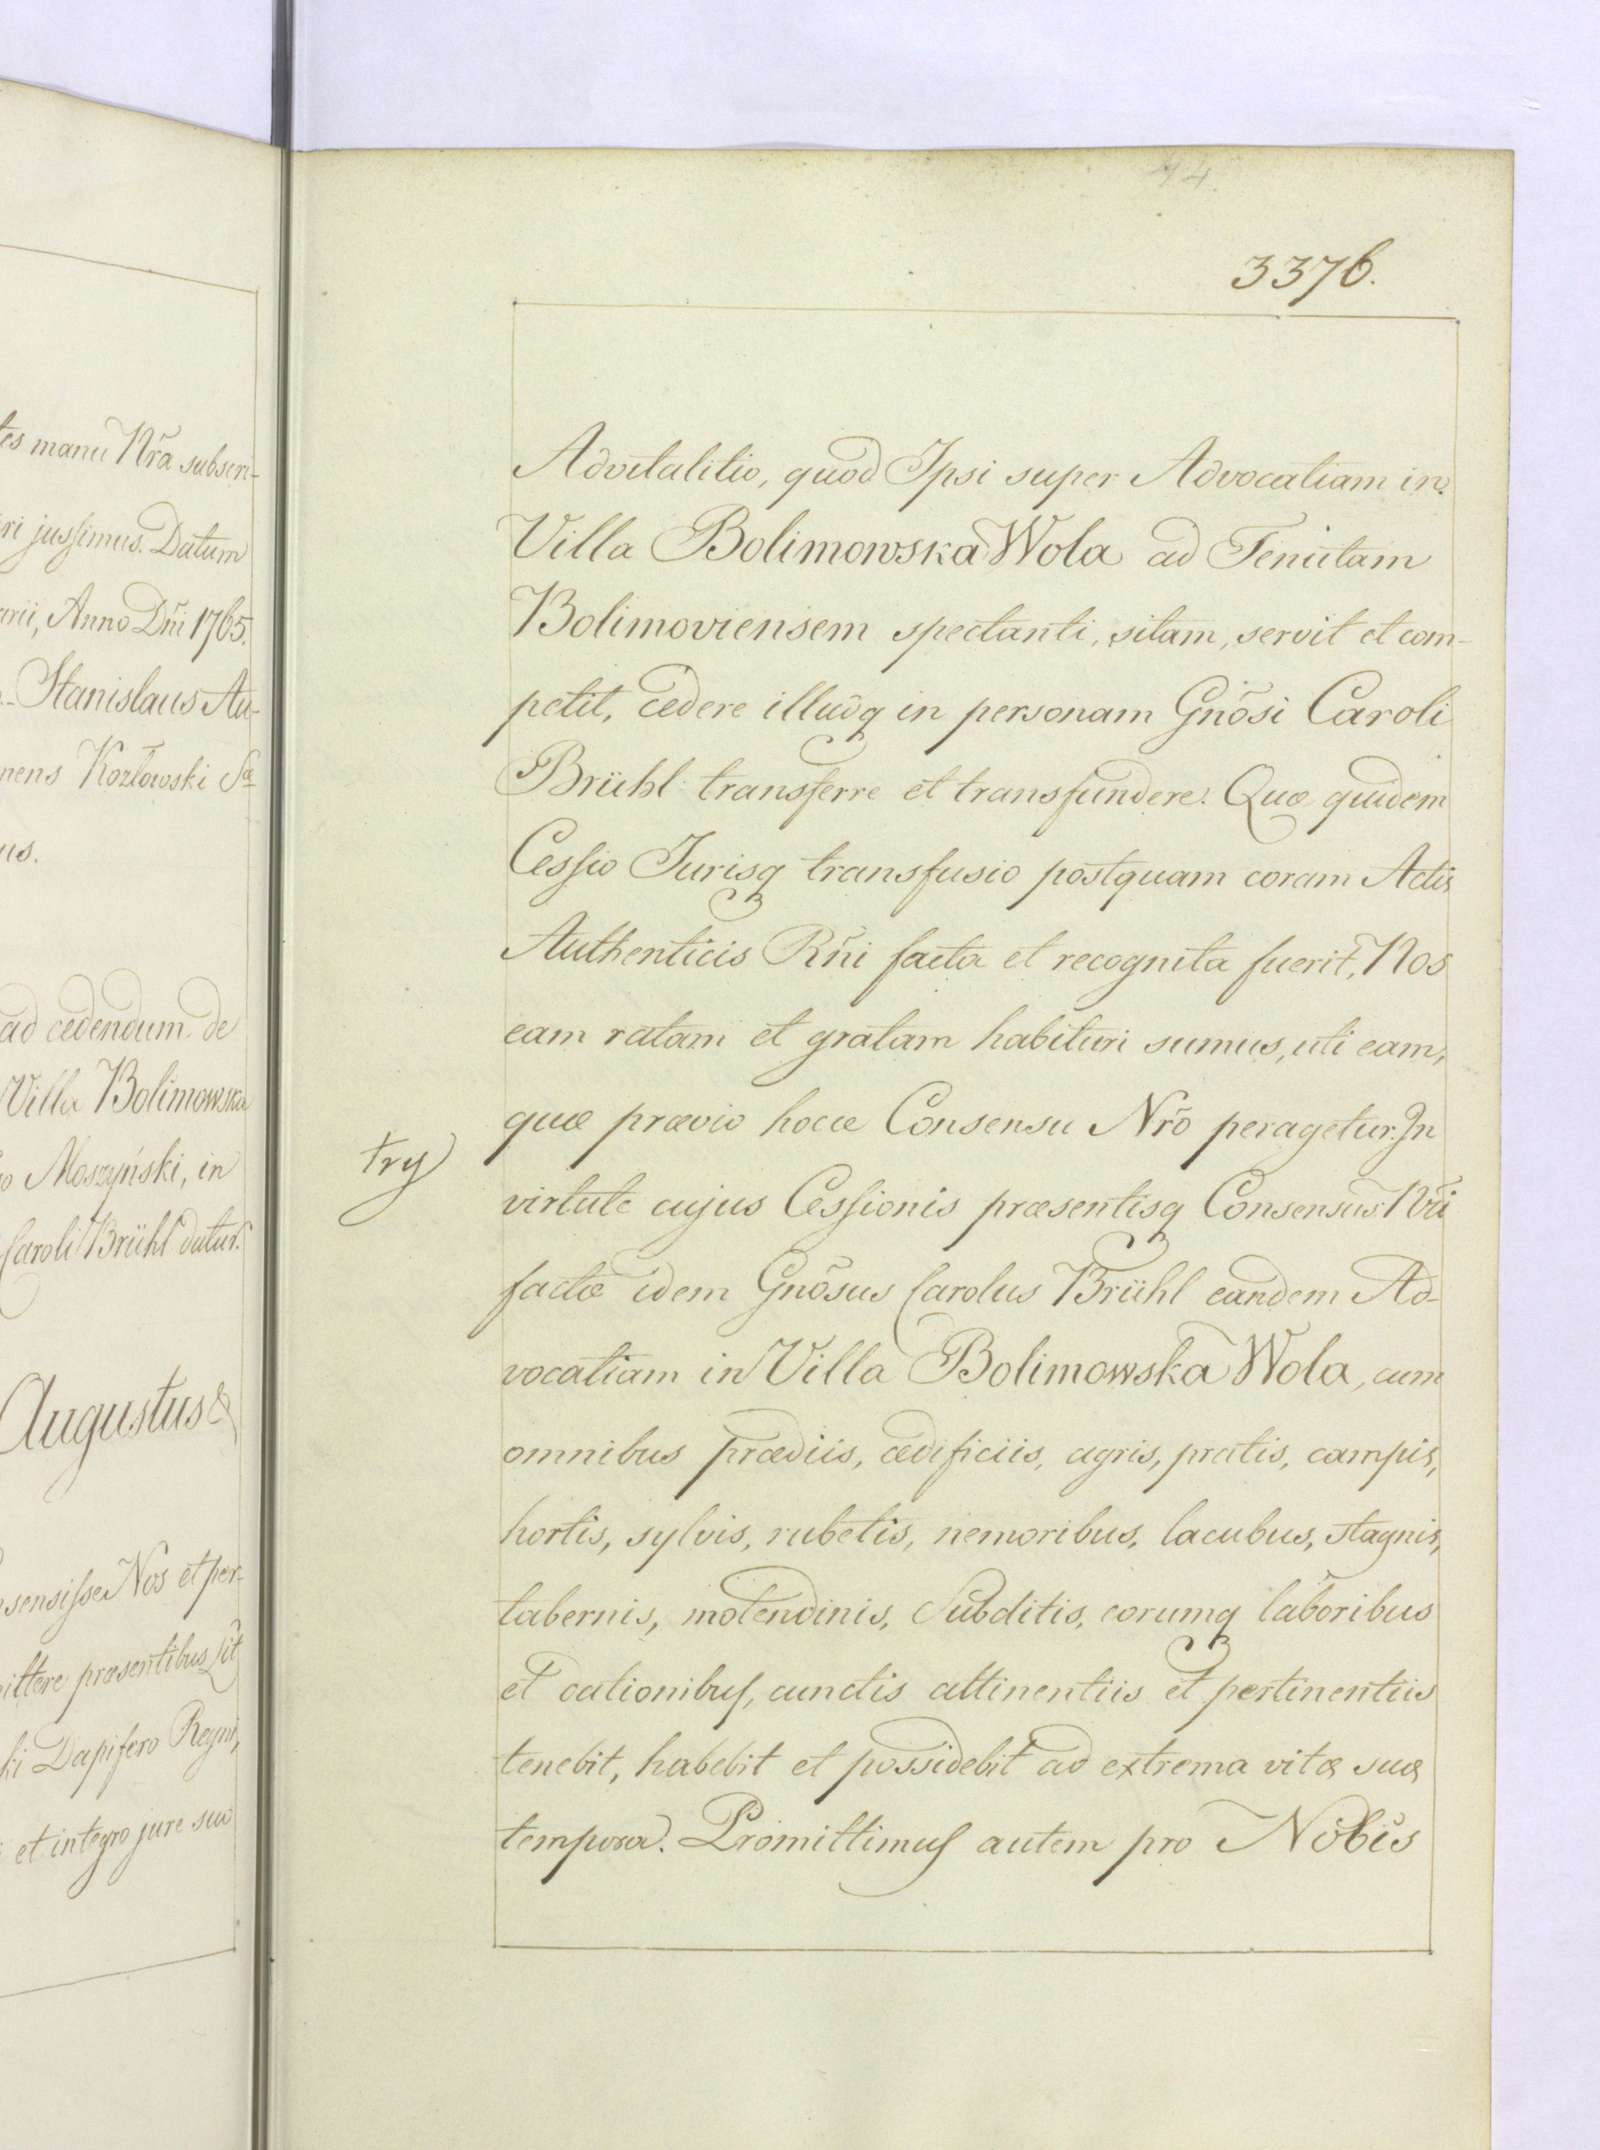 tes manu Nrã subscri-
ri jussimus. Datum
arii, Anno Dñi 1765.
Stanislaus Au-
mens Kozłowski Sæ
us.
ad cedendum de
Villa Bolimowska
o Moszyński, in
Caroli Brühl datur.
Augustus &
sensisse Nos et per-
mittere præsentibus Lit
ki Dapifero Regni,
et integro jure suo
14.
3376.
Advitalitio, quod Ipsi super Advocatiam in
Villa Bolimowska Wola ad Tenutam
Bolimoviensem spectanti, sitam, servit et com-
petit, cedere illudq in personam Gnõsi Caroli
Brühl transferre et transfundere. Quæ quidem
Cessio Jurisq transfusio postquam coram Actis
Authenticis Rñi facta et recognita fuerit, Nos
eam ratam et gratam habituri sumus, uti eam,
quæ prævio hocce Consensu Nrõ peragetur. In
try
virtute cujus Cessionis præsentisq Consensus Nri
factæ idem Gnõsus Carolus Brühl eandem Ad-
vocatiam in Villa Bolimowska Wola, cum
omnibus prædiis, ædificiis, agris, pratis, campis,
hortis, sylvis, rubetis, nemoribus, lacubus, stagnis,
tabernis, molendinis, Subditis, eorumq laboribus
et dationibus, cunctis attinentiis et pertinentiis
tenebit, habebit et possidebit ad extrema vitæ suæ
tempora. Promittimus autem pro Nobis